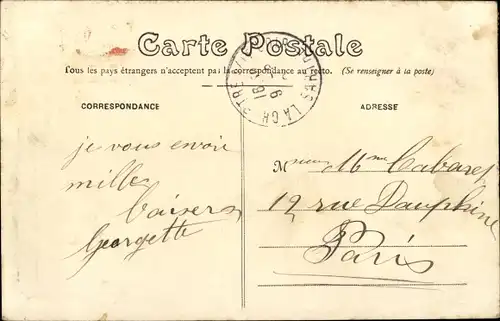 Carte Postale
Tous les pays étrangers n'acceptent pas la correspondance au recto. (Se renseigner à la poste)
CORRESPONDANCE
ADRESSE
je vous envoie
milles
baisers
Georgette
M Mme Cabaret
12 rue Dauphine
Paris